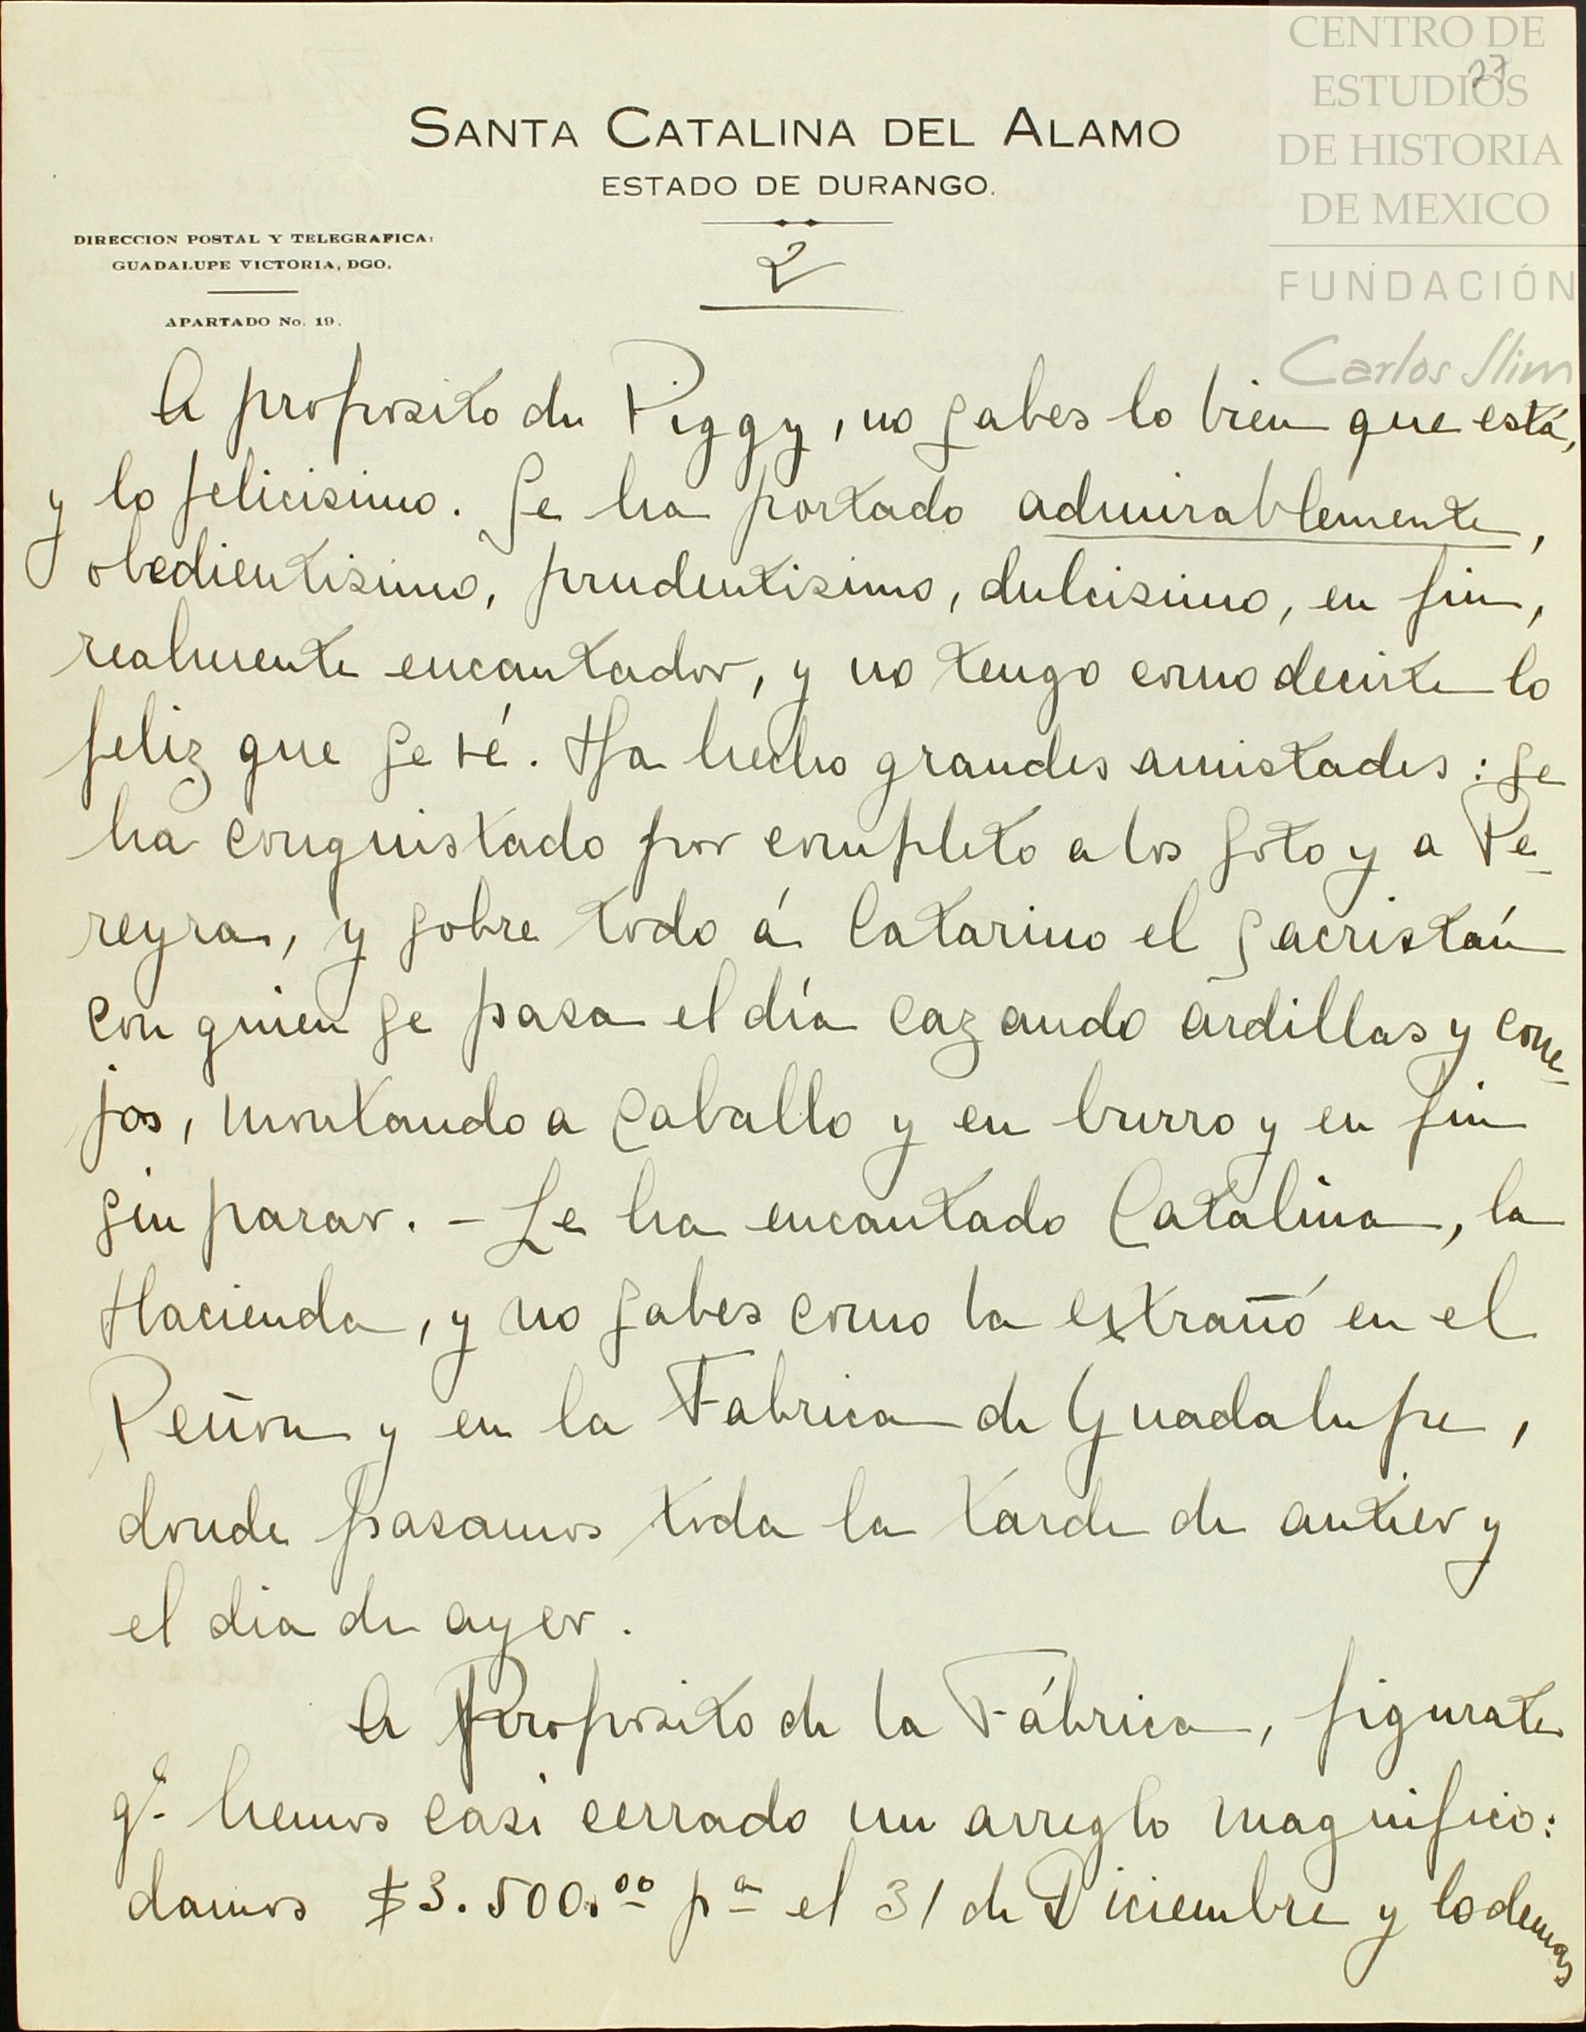 CENTRO DE
ESTUDIOS
DE HISTORIA
DE MEXICO
FUNDACIÓN
Carlos Slim
27
SANTA CATALINA DEL ALAMO
ESTADO DE DURANGO.
DIRECCION POSTAL Y TELEGRAFICA:
GUADALUPE VICTORIA, DGO.
APARTADO No. 19.
2
A proposito de Piggy, no sabes lo bien que está,
y lo felicisimo. Se ha portado admirablemente,
obedientisimo, prudentisimo, dulcisimo, en fin,
realmente encantador, y no tengo como decirte lo
feliz que se vé. Ha hecho grandes amistades: se
ha conquistado por completo a los Soto y a Pe-
reyra, y sobre todo á Catarino el sacristán
con quien se pasa el día cazando ardillas y cone-
jos, montando a caballo y en burro y en fin
sin parar. - Le ha encantado Catalina, la
Hacienda, y no sabes como la extrañó en el
Peñon y en la Fabrica de Guadalupe,
donde pasamos toda la tarde de antier y
el dia de ayer.
A Proposito de la Fábrica, figurate
qᵉ hemos casi cerrado un arreglo magnifico:
damos $3.500.ºº pª el 31 de Diciembre y lo demas